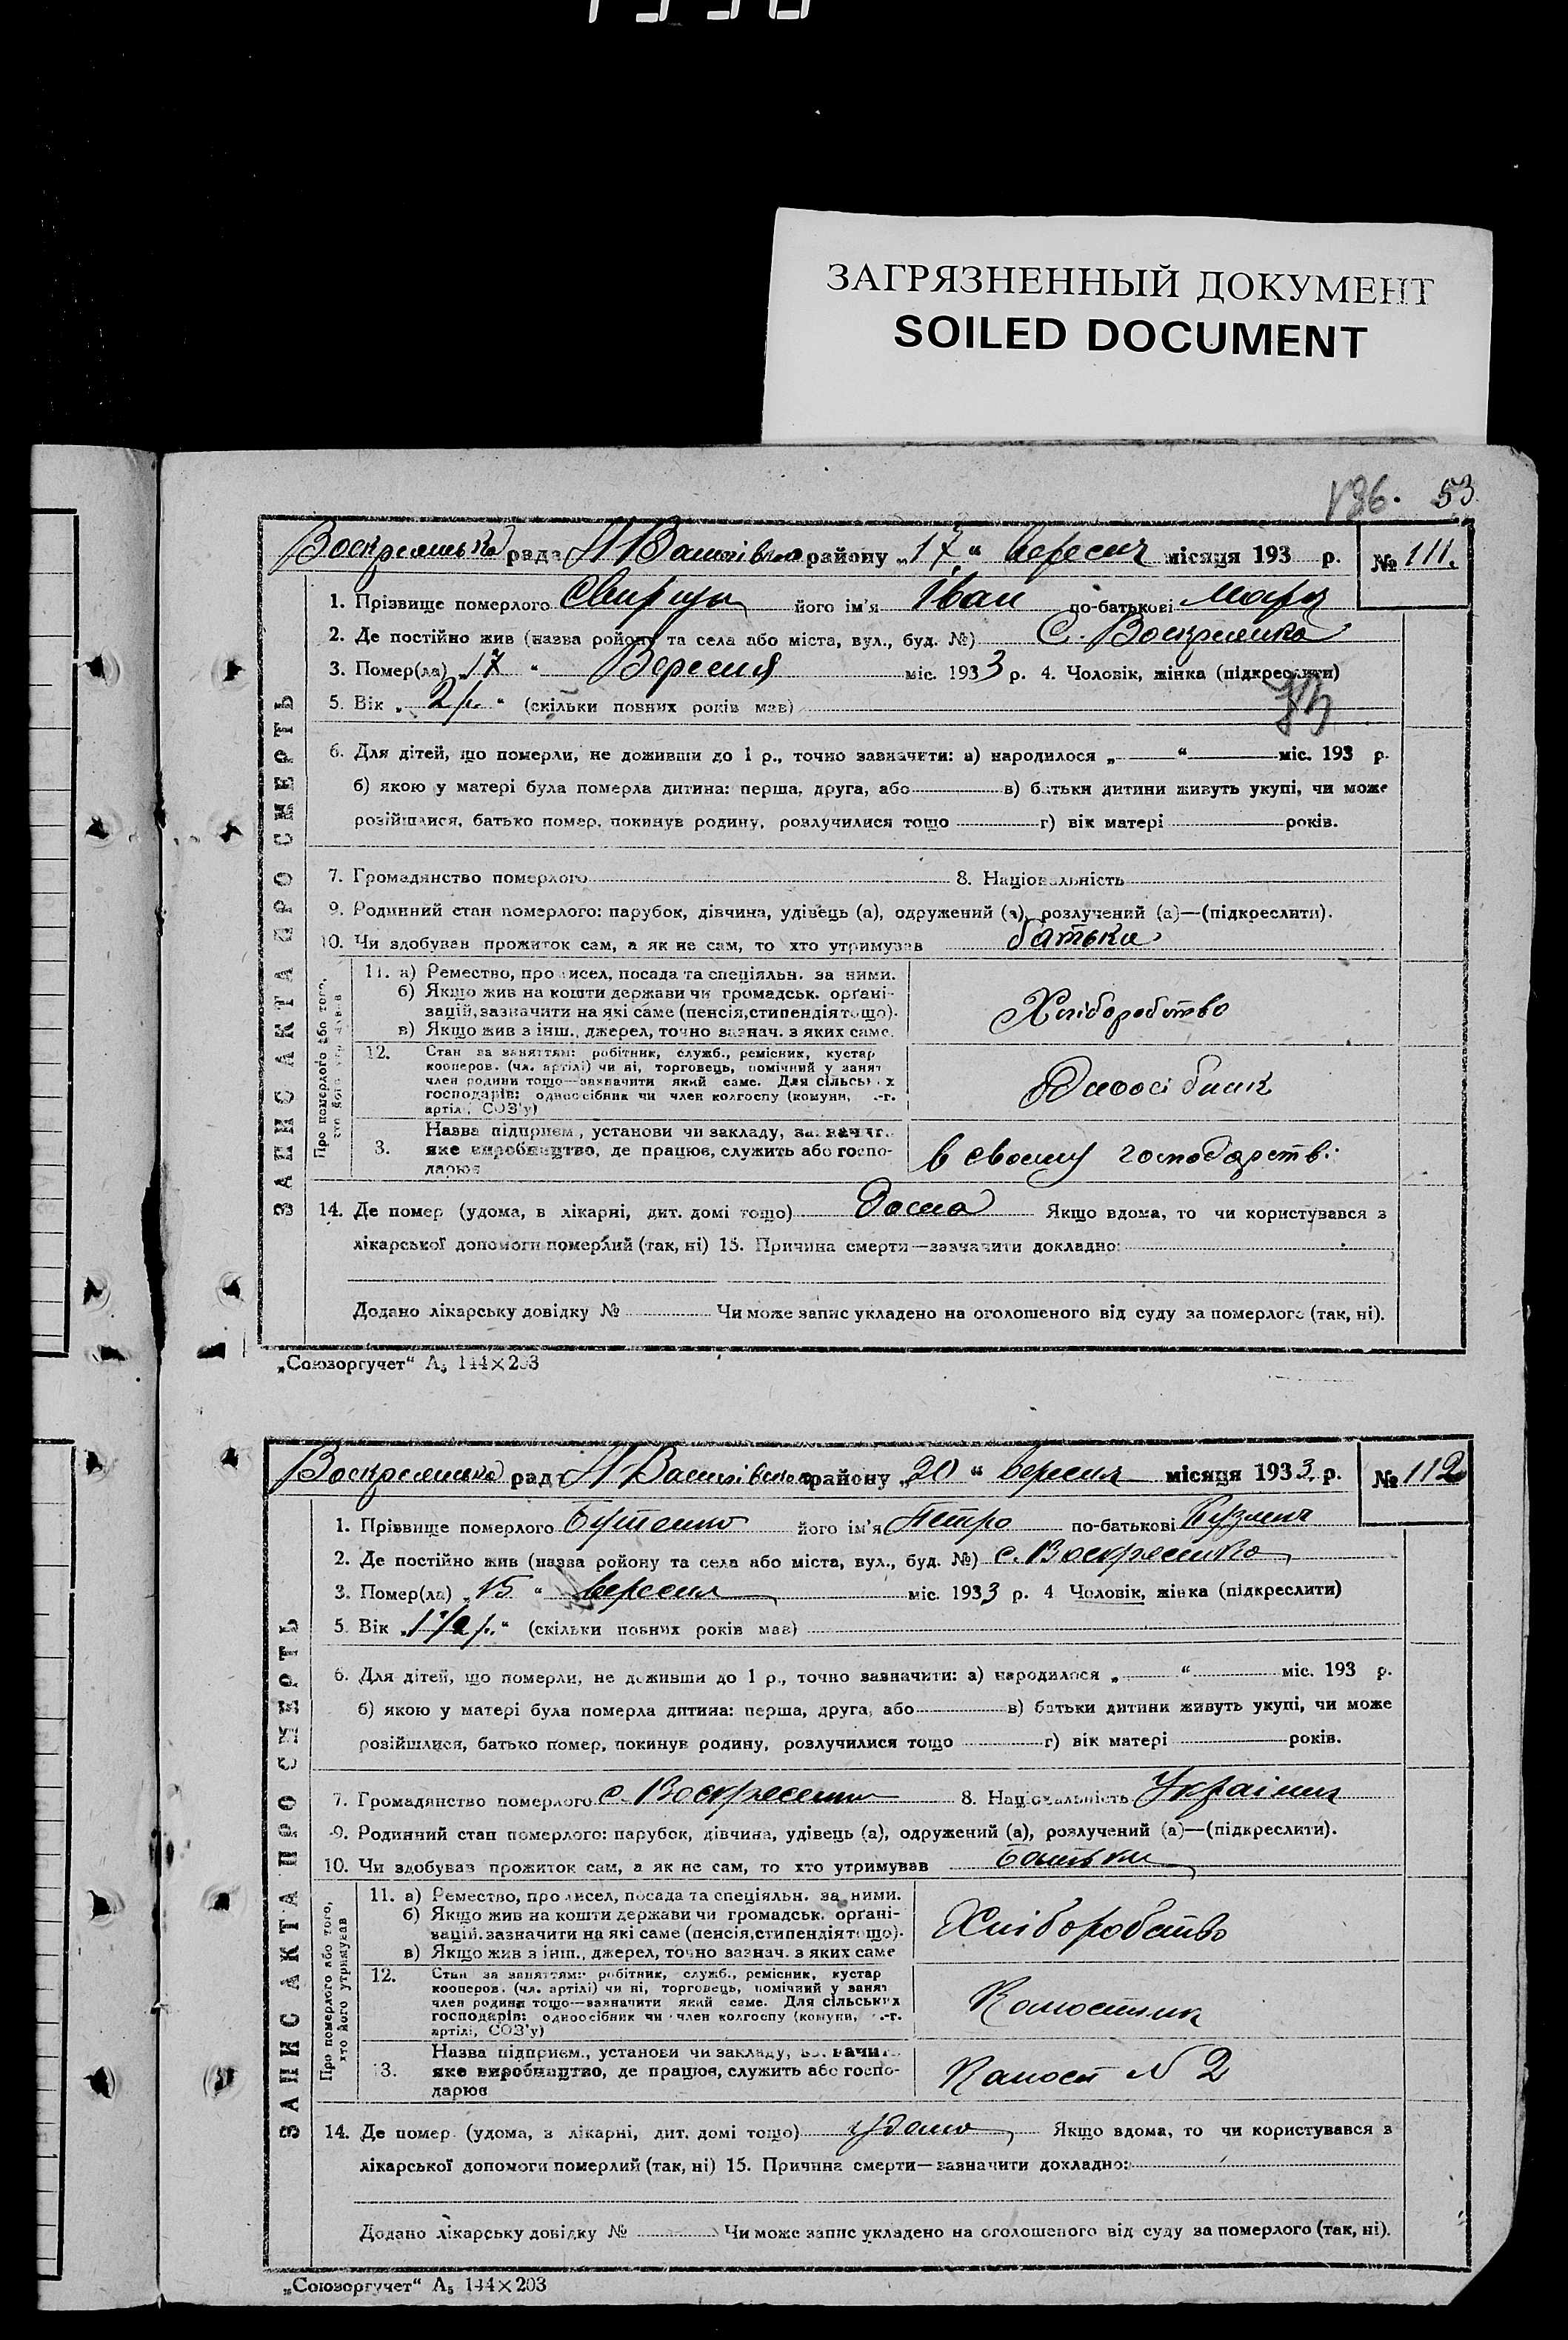 ЗАГРЯЗНЕННЫЙ ДОКУМЕНТ
SOILED DOCUMENT
53
ЗАПИС АКТА ПРО СМЕРТЬ
рада района „17“ вересня місяця 193 р. № 111.
1. Прізвище померлого його ім'я Іван по-батькові
2. Де постійно жив (назва ройону та села або міста, вул., буд. №) С.
3. Помер(ла) „17“ Вересня міс. 1933 р. 4. Чоловік, жінка (підкреслити)
5. Вік „2 р.“ (скільки повних років мав)
6. Для дітей, що померли, не доживши до 1 р., точно зазначити: а) народилося „ “ міс. 193 р.
б) якою у матері була померла дитина: перша, друга, або в) батьки дитини живуть укупі, чи може
розійшлися, батько помер, покинув родину, розлучилися тощо г) вік матері років.
7. Громадянство померлого 8. Національність
9. Родинний стан померлого: парубок, дівчина, удівець (а), одружений (а), розлучений (а)—(підкреслити).
10. Чи здобував прожиток сам, а як не сам, то хто утримував батьки
Про померлого або того, хто його утримував
11. а) Ремество, промисел, посада та спеціяльн. за ними.
б) Якщо жив на кошти держави чи громадськ. орґані-
зацій, зазначити на які саме (пенсія, стипендія тощо).
в) Якщо жив з інш., джерел, точно зазнач. з яких саме.
Хліборобство
12. Стан за заняттям: робітник, служб., ремісник, кустар
кооперов. (чл. артілі) чи ні, торговець, помічний у занят
член родини тощо—зазначити який саме. Для сільських
господарів: одноосібник чи член колгоспу (комуни, с.-г.
артілі, СОЗ'у)
Одноосібник
13. Назва підприєм., установи чи закладу, зазначит.
яке виробництво, де працює, служить або госпо-
дарює
в своему господарстві
14. Де помер (удома, в лікарні, дит. домі тощо) Дома Якщо вдома, то чи користувався з
лікарської допомоги померлий (так, ні) 15. Причина смерти—зазначити докладно:
Додано лікарську довідку № Чи може запис укладено на оголошеного від суду за померлого (так, ні).
„Союзоргучет“ А5 144×203
ЗАПИС АКТА ПРО СМЕРТЬ
рад району „20“ вересня місяця 1933 р. № 112
1. Прізвище померлого Бутенко його ім'я Петро по-батькові
2. Де постійно жив (назва ройону та села або міста, вул., буд. №) с. Воскресенка
3. Помер(ла) „15“ вересня міс. 1933 р. 4 Чоловік, жінка (підкреслити)
5. Вік „1 1/2 р.“ (скільки повних років мав)
6. Для дітей, що померли, не доживши до 1 р., точно зазначити: а) народилося „ “ міс. 193 р.
б) якою у матері була померла дитина: перша, друга, або в) батьки дитини живуть укупі, чи може
розійшлися, батько помер, покинув родину, розлучилися тощо г) вік матері років.
7. Громадянство померлого с. 8. Національність
9. Родинний стан померлого: парубок, дівчина, удівець (а), одружений (а), розлучений (а)—(підкреслити).
10. Чи здобував прожиток сам, а як не сам, то хто утримував батьки
Про померлого або того, хто його утримував
11. а) Ремество, промисел, посада та спеціяльн. за ними.
б) Якщо жив на кошти держави чи громадськ. орґані-
зацій, зазначити на які саме (пенсія, стипендія тощо).
в) Якщо жив з інш., джерел, точно зазнач. з яких саме
Хліборобство
12. Стан за заняттям: робітник, служб., ремісник, кустар
кооперов. (чл. артілі) чи ні, торговець, помічний у занят
член родини тощо—зазначити який саме. Для сільських
господарів: одноосібник чи член колгоспу (комуни, с.-г.
артілі, СОЗ'у)
13. Назва підприєм., установи чи закладу, зазначит.
яке виробництво, де працює, служить або госпо-
дарює
N 2
14. Де помер (удома, в лікарні, дит. домі тощо) удома Якщо вдома, то чи користувався з
лікарської допомоги померлий (так, ні) 15. Причина смерти—зазначити докладно:
Додано лікарську довідку № Чи може запис укладено на оголошеного від суду за померлого (так, ні).
„Союзоргучет“ А5 144×203